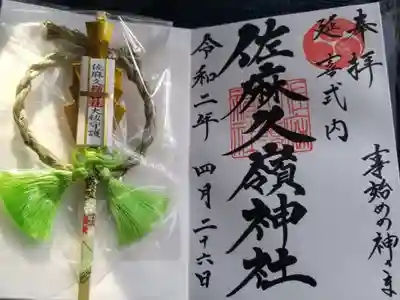 奉拝
延喜式内
事始めの神さま
佐麻久嶺神社
令和二年 四月二十六日
佐麻久嶺神社大祓守護